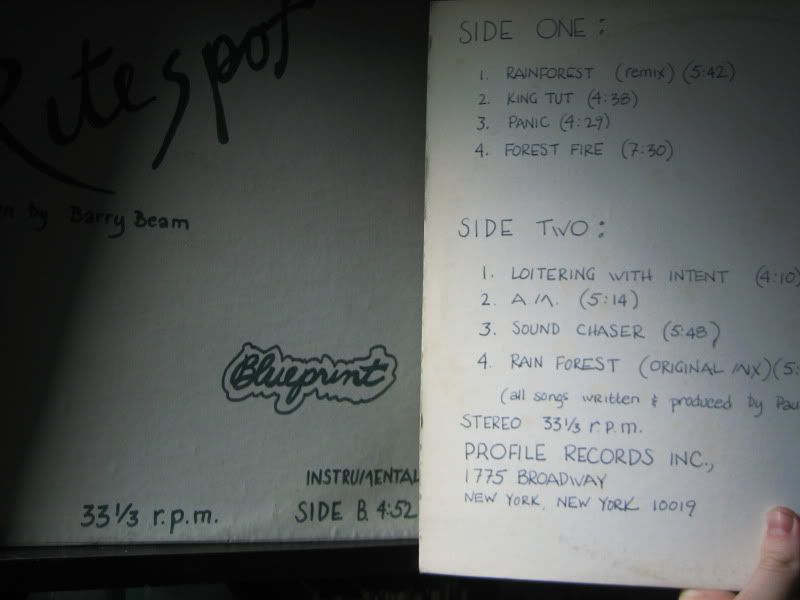 Ritespot
by Barry Beam
Blueprint
INSTRUMENTAL
33 1/3 r.p.m.
SIDE B. 4:52
SIDE ONE:
1. RAINFOREST (remix) (5:42)
2. KING TUT (4:38)
3. PANIC (4:29)
4. FOREST FIRE (7:30)
SIDE TWO:
1. LOITERING WITH INTENT (4:10)
2. A.M. (5:14)
3. SOUND CHASER (5:48)
4. RAIN FOREST (ORIGINAL MIX) (5:
(all songs written & produced by Pau
STEREO 33 1/3 r.p.m.
PROFILE RECORDS INC.,
1775 BROADWAY
NEW YORK, NEW YORK 10019